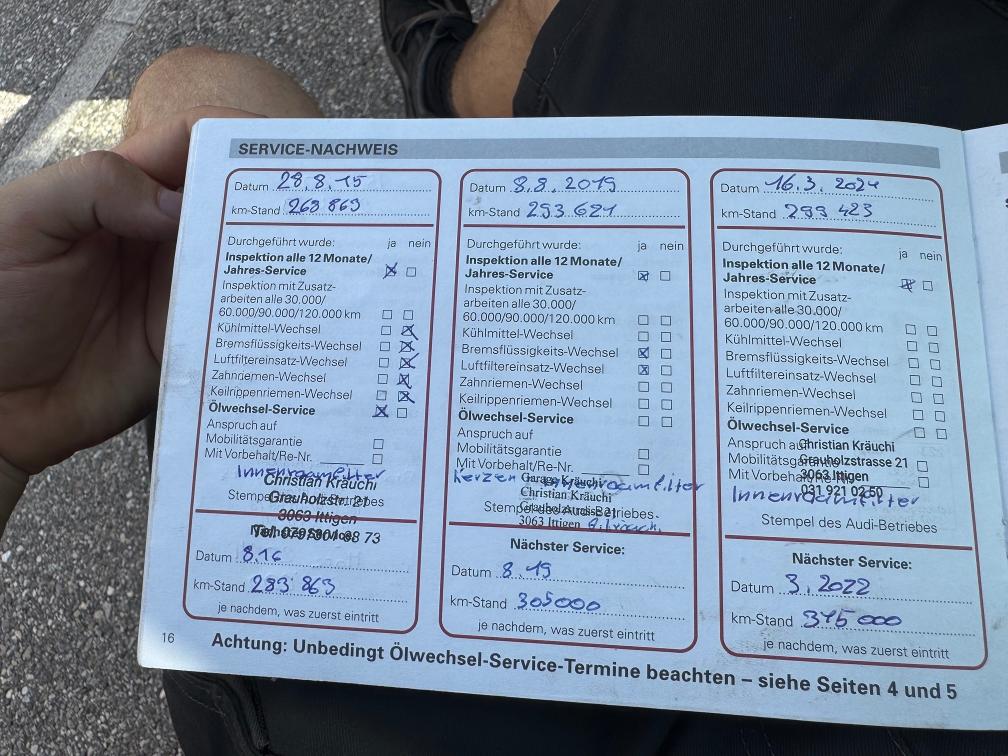 SERVICE-NACHWEIS
Datum 28.8.15
km-Stand 268 863
Durchgeführt wurde: ja nein
Inspektion alle 12 Monate/
Jahres-Service
Inspektion mit Zusatz-
arbeiten alle 30.000/
60.000/90.000/120.000 km
Kühlmittel-Wechsel
Bremsflüssigkeits-Wechsel
Luftfiltereinsatz-Wechsel
Zahnriemen-Wechsel
Keilrippenriemen-Wechsel
Ölwechsel-Service
Anspruch auf
Mobilitätsgarantie
Mit Vorbehalt/Re-Nr.
Innenraumfilter
Christian Kräuchi
Grauholzstr. 21
3063 Ittigen
Datum 8.16
km-Stand 283 863
je nachdem, was zuerst eintritt
Datum 8.8.2019
km-Stand 293 621
Durchgeführt wurde: ja nein
Inspektion alle 12 Monate/
Jahres-Service
Inspektion mit Zusatz-
arbeiten alle 30.000/
60.000/90.000/120.000 km
Kühlmittel-Wechsel
Bremsflüssigkeits-Wechsel
Luftfiltereinsatz-Wechsel
Zahnriemen-Wechsel
Keilrippenriemen-Wechsel
Ölwechsel-Service
Anspruch auf
Mobilitätsgarantie
Mit Vorbehalt/Re-Nr.
Kerzen Innenraumfilter
Garage Kräuchi
Christian Kräuchi
Grauholzstrasse 21
3063 Ittigen
Nächster Service:
Datum 8.19
km-Stand 305000
je nachdem, was zuerst eintritt
Datum 16.3.2021
km-Stand 299 423
Durchgeführt wurde: ja nein
Inspektion alle 12 Monate/
Jahres-Service
Inspektion mit Zusatz-
arbeiten alle 30.000/
60.000/90.000/120.000 km
Kühlmittel-Wechsel
Bremsflüssigkeits-Wechsel
Luftfiltereinsatz-Wechsel
Zahnriemen-Wechsel
Keilrippenriemen-Wechsel
Ölwechsel-Service
Anspruch auf
Christian Kräuchi
Mobilitätsgarantie
Grauholzstrasse 21
Mit Vorbehalt/Re-Nr.
3063 Ittigen
031 921 02 50
Innenraumfilter
Stempel des Audi-Betriebes
Nächster Service:
Datum 3.2022
km-Stand 315 000
je nachdem, was zuerst eintritt
16
Achtung: Unbedingt Ölwechsel-Service-Termine beachten – siehe Seiten 4 und 5